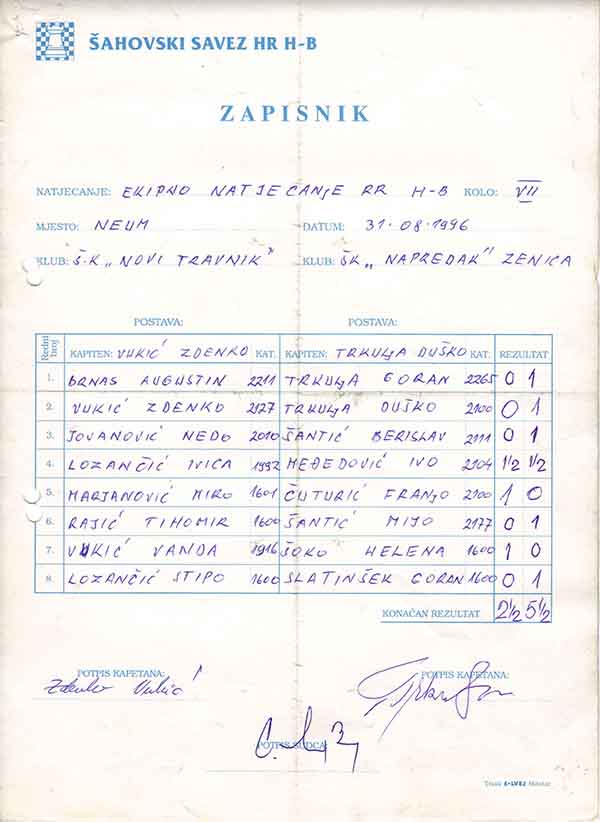 ŠAHOVSKI SAVEZ HR H-B
ZAPISNIK
NATJECANJE: EKIPNO NATJECANJE RR H-B KOLO: VII
MJESTO: NEUM DATUM: 31.08.1996
KLUB: Š.K „NOVI TRAVNIK" KLUB: ŠK „NAPREDAK" ZENICA
POSTAVA: POSTAVA:
Redni broj KAPITEN: VUKIĆ ZDENKO KAT. KAPITEN: TRKULJA DUŠKO KAT. REZULTAT
1. DRNAS AUGUSTIN 2211 TRKULJA GORAN 2265 0 1
2. VUKIĆ ZDENKO 2127 TRKULJA DUŠKO 2100 0 1
3. JOVANOVIĆ NEDO 2010 ŠANTIĆ BERISLAV 2111 0 1
4. LOZANČIĆ IVICA 1992 MEĐEDOVIĆ IVO 2104 1/2 1/2
5. MARJANOVIĆ MIRO 1601 ČUTURIĆ FRANJO 2100 1 0
6. RAJIĆ TIHOMIR 1600 ŠANTIĆ MIJO 2177 0 1
7. VUKIĆ VANDA 1916 ŠOKO HELENA 1600 1 0
8. LOZANČIĆ STIPO 1600 SLATINŠEK GORAN 1600 0 1
KONAČAN REZULTAT 2 1/2 5 1/2
POTPIS KAPETANA: POTPIS KAPETANA:
Zdenko Vukić
POTPIS SUDCA: